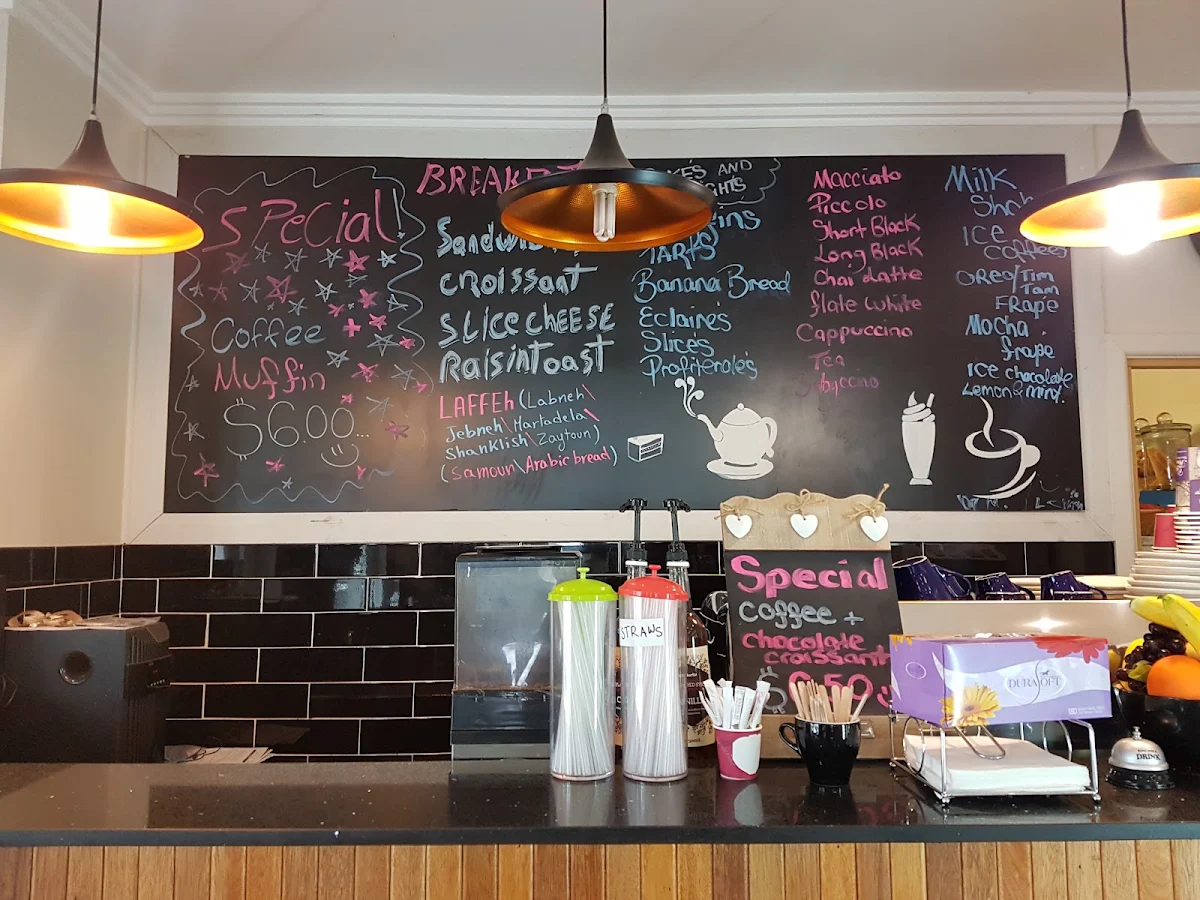 SPecial!
Coffee
Muffin
$6.00
BREAKF
Sandwi
CROISSANT
SLICE CHEESE
RaisinToast
LAFFEh (Labneh\
Jebneh\Martadela\
Shanklish\Zaytoun)
(Samoun\Arabic bread)
AND
TARTS
Banana Bread
Eclaires
Slices
Profiteroles
Macciato
Piccolo
Short Black
Long Black
Chai Latte
flate white
Cappuccino
Tea
Milk
Shak
ICE
Coffee
OREO/Tim
Tam
FRAPE
Mocha
frape
ICE chocolate
Lemon & mint
STRAWS
Special
Coffee +
chocolate
croissant
6.50
DURASOFT
DRINK